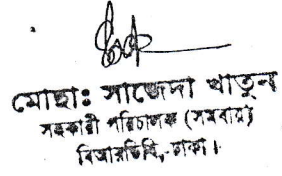 মোছাঃ সাজেদা খাতুন
সহকারী পরিচালক (সমবায়)
বিআরডিবি, ঢাকা।